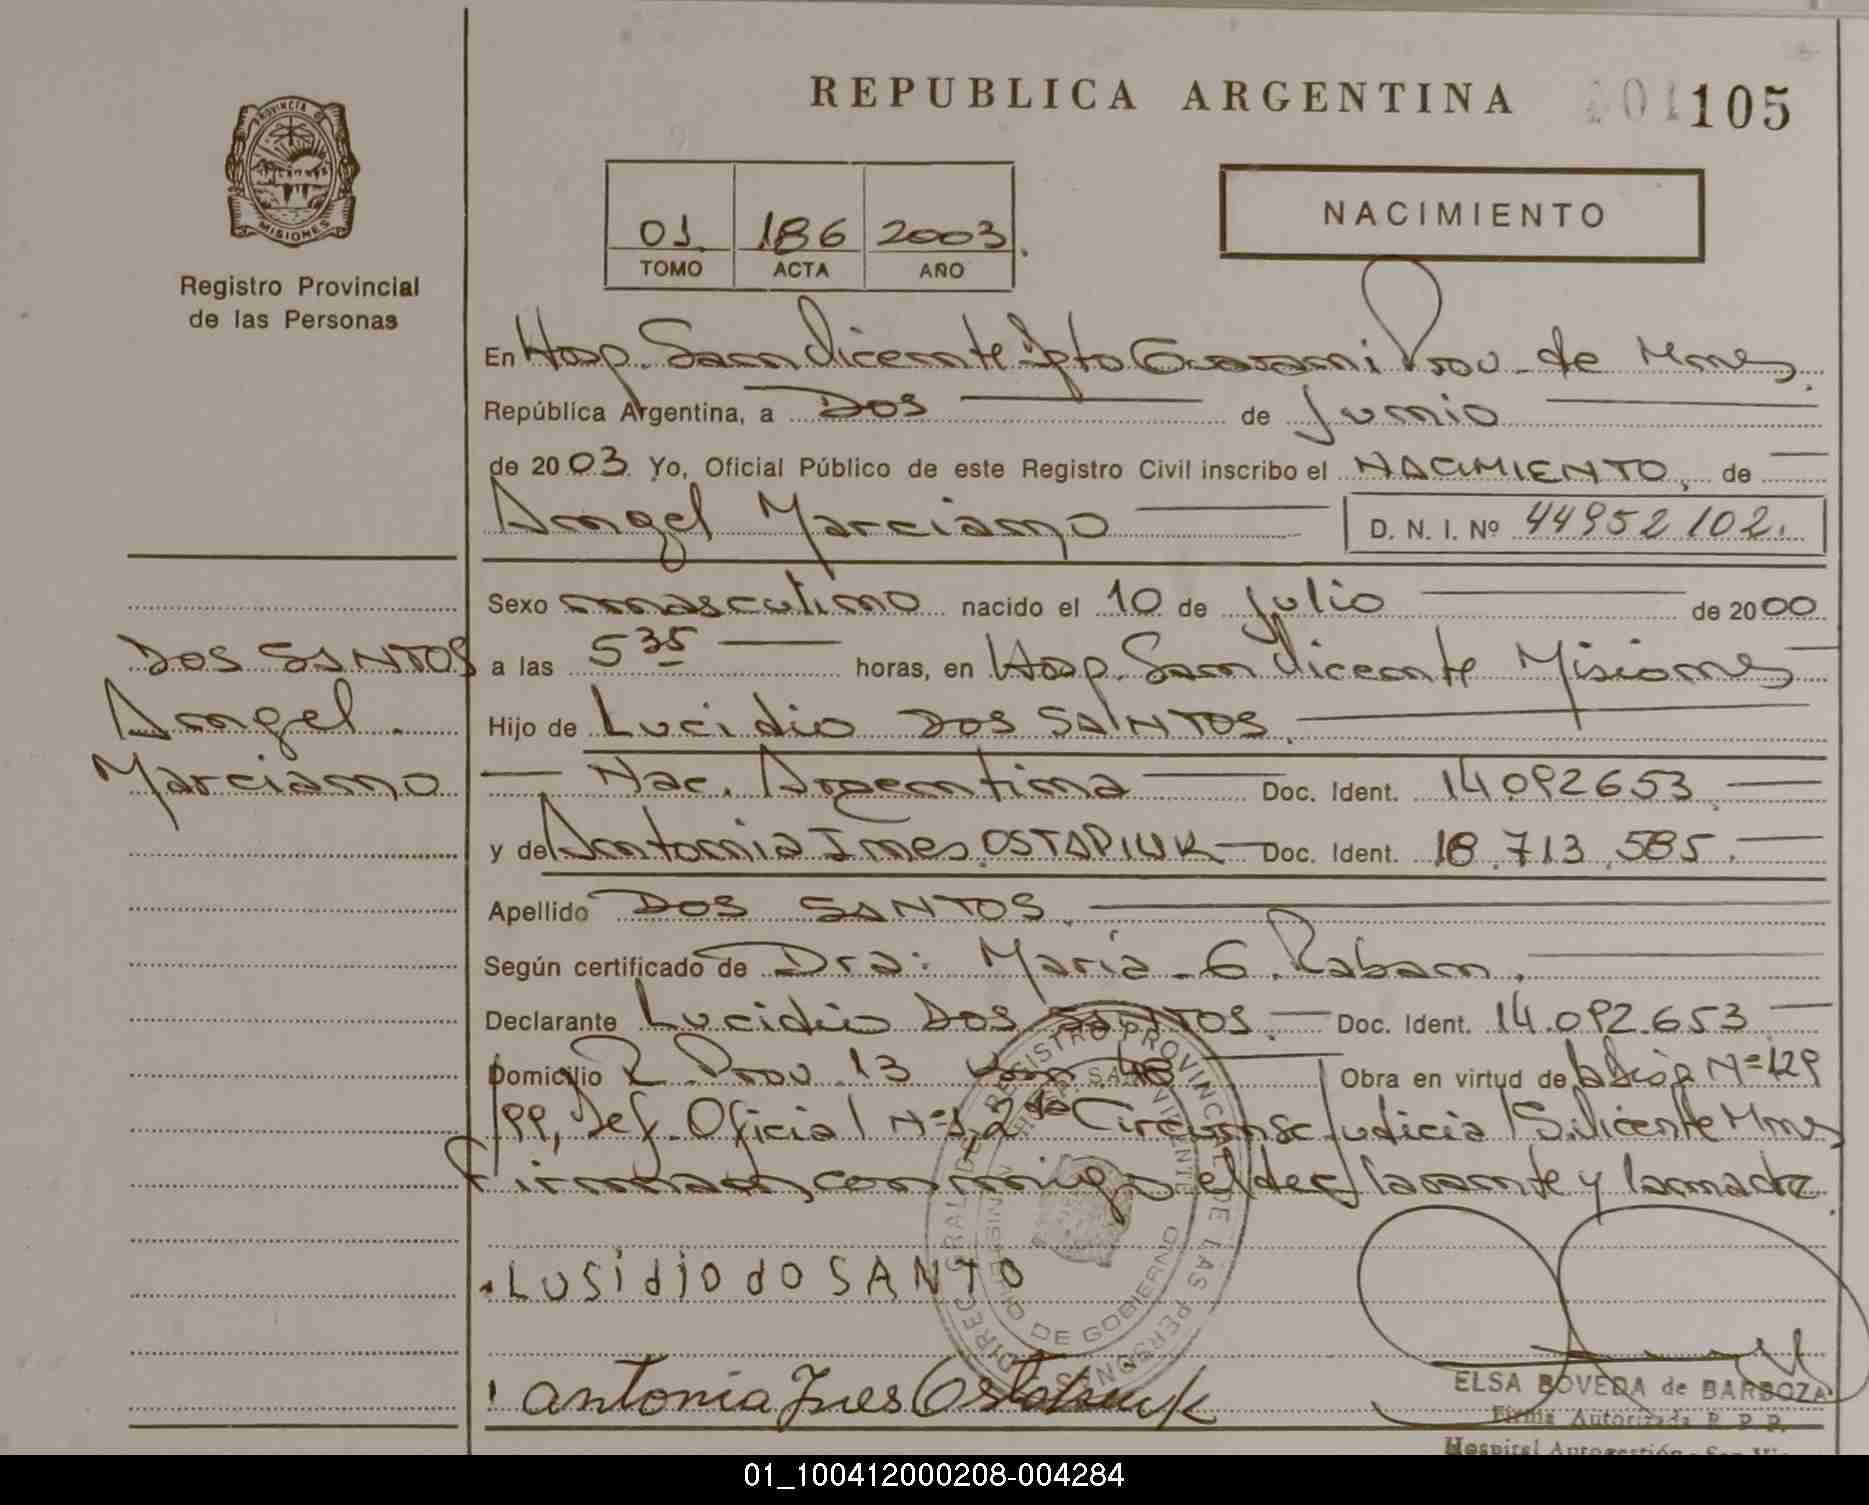 REPUBLICA ARGENTINA
105
PROVINCIA DE
MISIONES
Registro Provincial
de las Personas
01 186 2003
TOMO ACTA AÑO
NACIMIENTO
En Hosp. San Vicente Dpto Guarani Prov. de Mnes.
República Argentina, a Dos de Junio
de 2003 Yo, Oficial Público de este Registro Civil inscribo el NACIMIENTO, de
Angel Marciano D. N. I. Nº 44952102.
Sexo masculino nacido el 10 de Julio de 2000
DOS SANTOS
Angel.
Marciano
a las 5 35 horas, en Hosp. San Vicente Misiones
Hijo de Lucidio DOS SANTOS.
Nac. Argentina Doc. Ident. 14092653
y de Antonia Ines OSTAPIUK Doc. Ident. 18.713.585.
Apellido DOS SANTOS.
Según certificado de Dra: Maria G. Raban.
Declarante Lucidio DOS SANTOS Doc. Ident. 14.092.653
Domicilio R. Prov 13 Km 48 Obra en virtud de Nº 129
/99, Def. Oficial Nº 1, 2da Circunsc Judicial S. Vicente Mnes
Firman conmigo el declarante y la madre.
LUSidiO dO SANTO
antonia Ines Ostapiuk
REGISTRO PROVINCIAL DE LAS PERSONAS
DE GOBIERNO
ELSA BOVEDA de BARBOZA
Firma Autorizada R. P. P.
Hospital Autogestión - San Vic
01_100412000208-004284